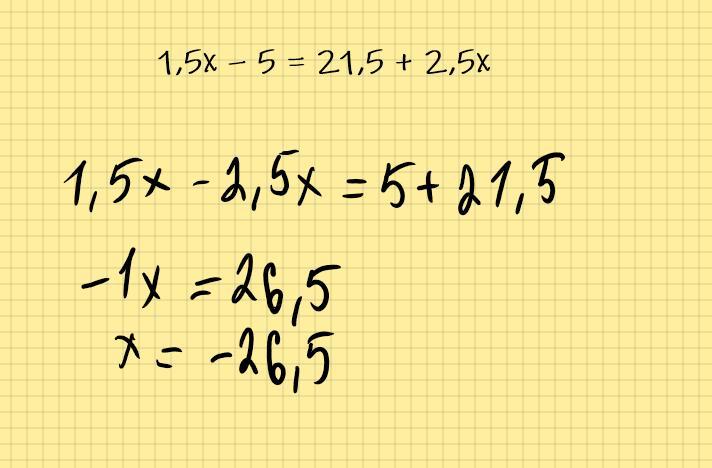 1,5x − 5 = 21,5 + 2,5x
1,5x - 2,5x = 5 + 21,5
-1x = 26,5
x = -26,5